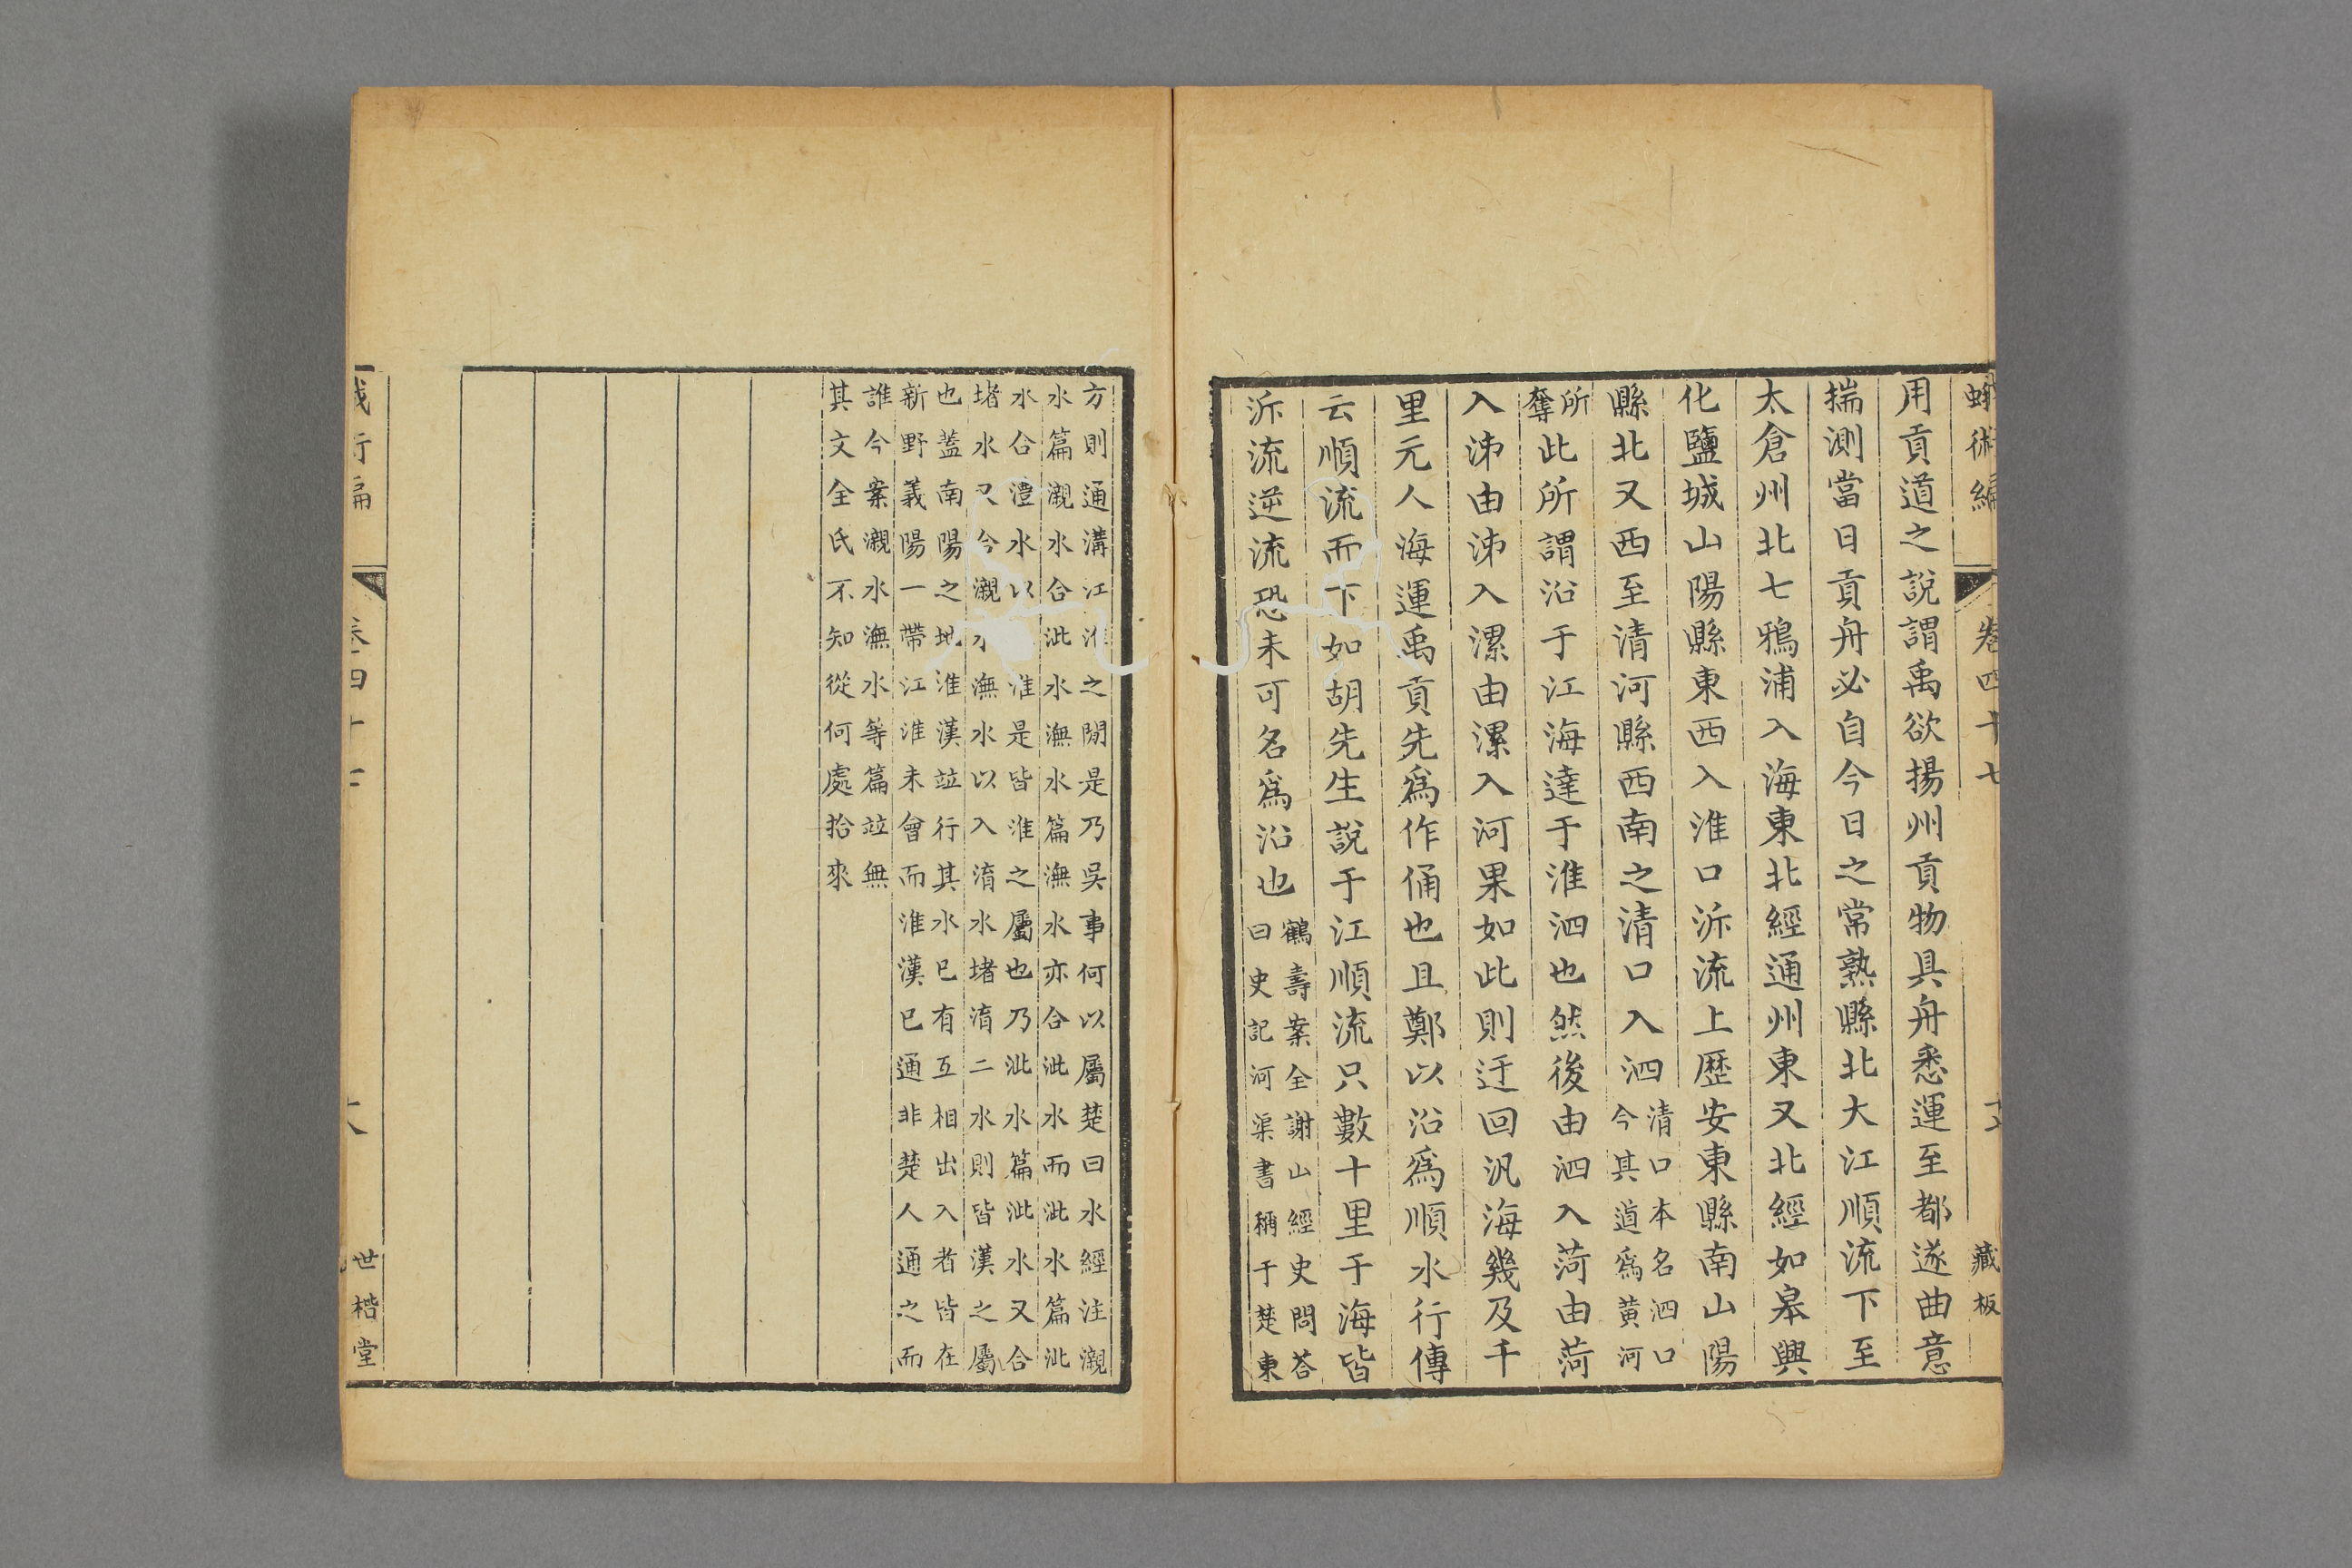 蛾術編 卷四十七 藏板
用貢道之說謂禹欲揚州貢物具舟悉運至都遂曲意
揣測當日貢舟必自今日之常熟縣北大江順流下至
太倉州北七鴉浦入海東北經通州東又北經如皋興
化鹽城山陽縣東西入淮口泝流上歷安東縣南山陽
縣北又西至清河縣西南之清口入泗
清口本名泗口
今其道爲黃河
所
奪
此所謂沿于江海達于淮泗也然後由泗入菏由菏
入泲由泲入漯由漯入河果如此則迂回汎海幾及千
里元人海運禹貢先爲作俑也且鄭以沿爲順水行傳
云順流而下如胡先生說于江順流只數十里于海皆
泝流逆流恐未可名爲沿也
鶴壽案全謝山經史問荅
曰史記河渠書稱于楚東
方則通溝江淮之閒是乃吳事何以屬楚曰水經注瀙
水篇瀙水合泚水潕水篇潕水亦合泚水而泚水篇泚
水合澧水以淮是皆淮之屬也乃泚水篇泚水又合
堵水又今瀙水潕水以入淯水堵淯二水則皆漢之屬
也蓋南陽之地淮漢竝行其水已有互相出入者皆在
新野義陽一帶江淮未會而淮漢已通非楚人通之而
誰今案瀙水潕水等篇竝無
其文全氏不知從何處拾來
蛾術編 卷四十七 世楷堂